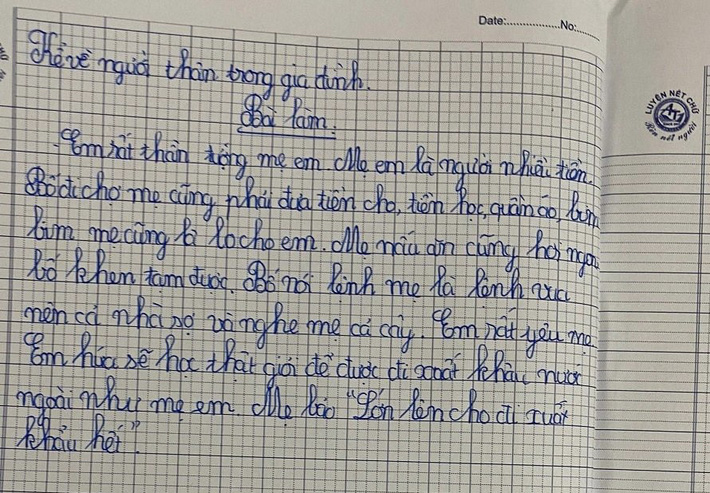 Date:..................No:........
Kể về người thân trong gia đình.
Bài làm.
Em rất thân trọng mẹ em. Mẹ em là người nhiều tiền.
Bố đi chợ mẹ cũng phải đưa tiền cho, tiền học, quần áo, bim
bim mẹ cũng là lo cho em. Mẹ nấu ăn cũng hơi ngon
bố khen tạm được. Bố nói lệnh mẹ là lệnh vua
nên cả nhà sợ và nghe mẹ cả cây. Em rất yêu mẹ.
Em hứa sẽ học thật giỏi để được đi xoất khẩu nước
ngoài như mẹ em. Mẹ bảo "Lớn lên cho đi xuất
khẩu hết".
LUYỆN NÉT CHỮ
Rèn nết người